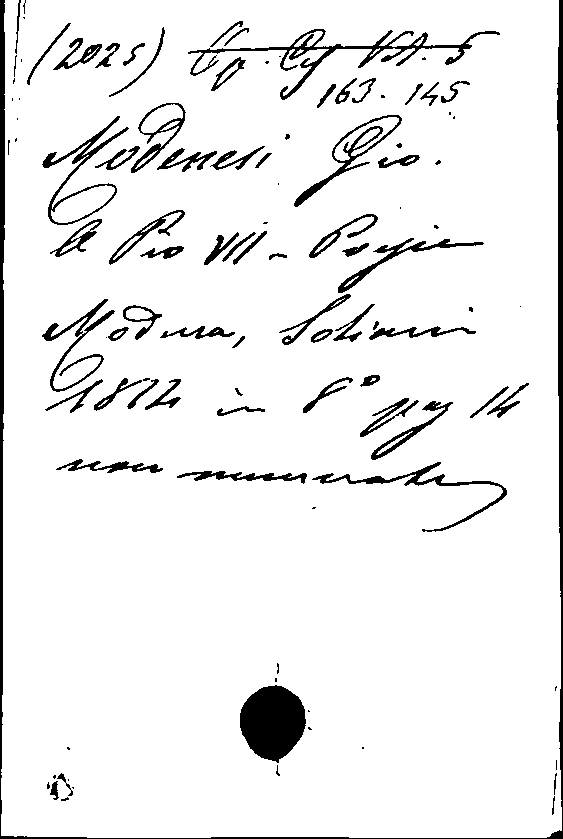 (2025) Op. Cy VA. 5
163. 145
Modenesi Gio.
A Pio VII - Poesie
Modena, Soliani
1814 in 8° pag 14
non numerate